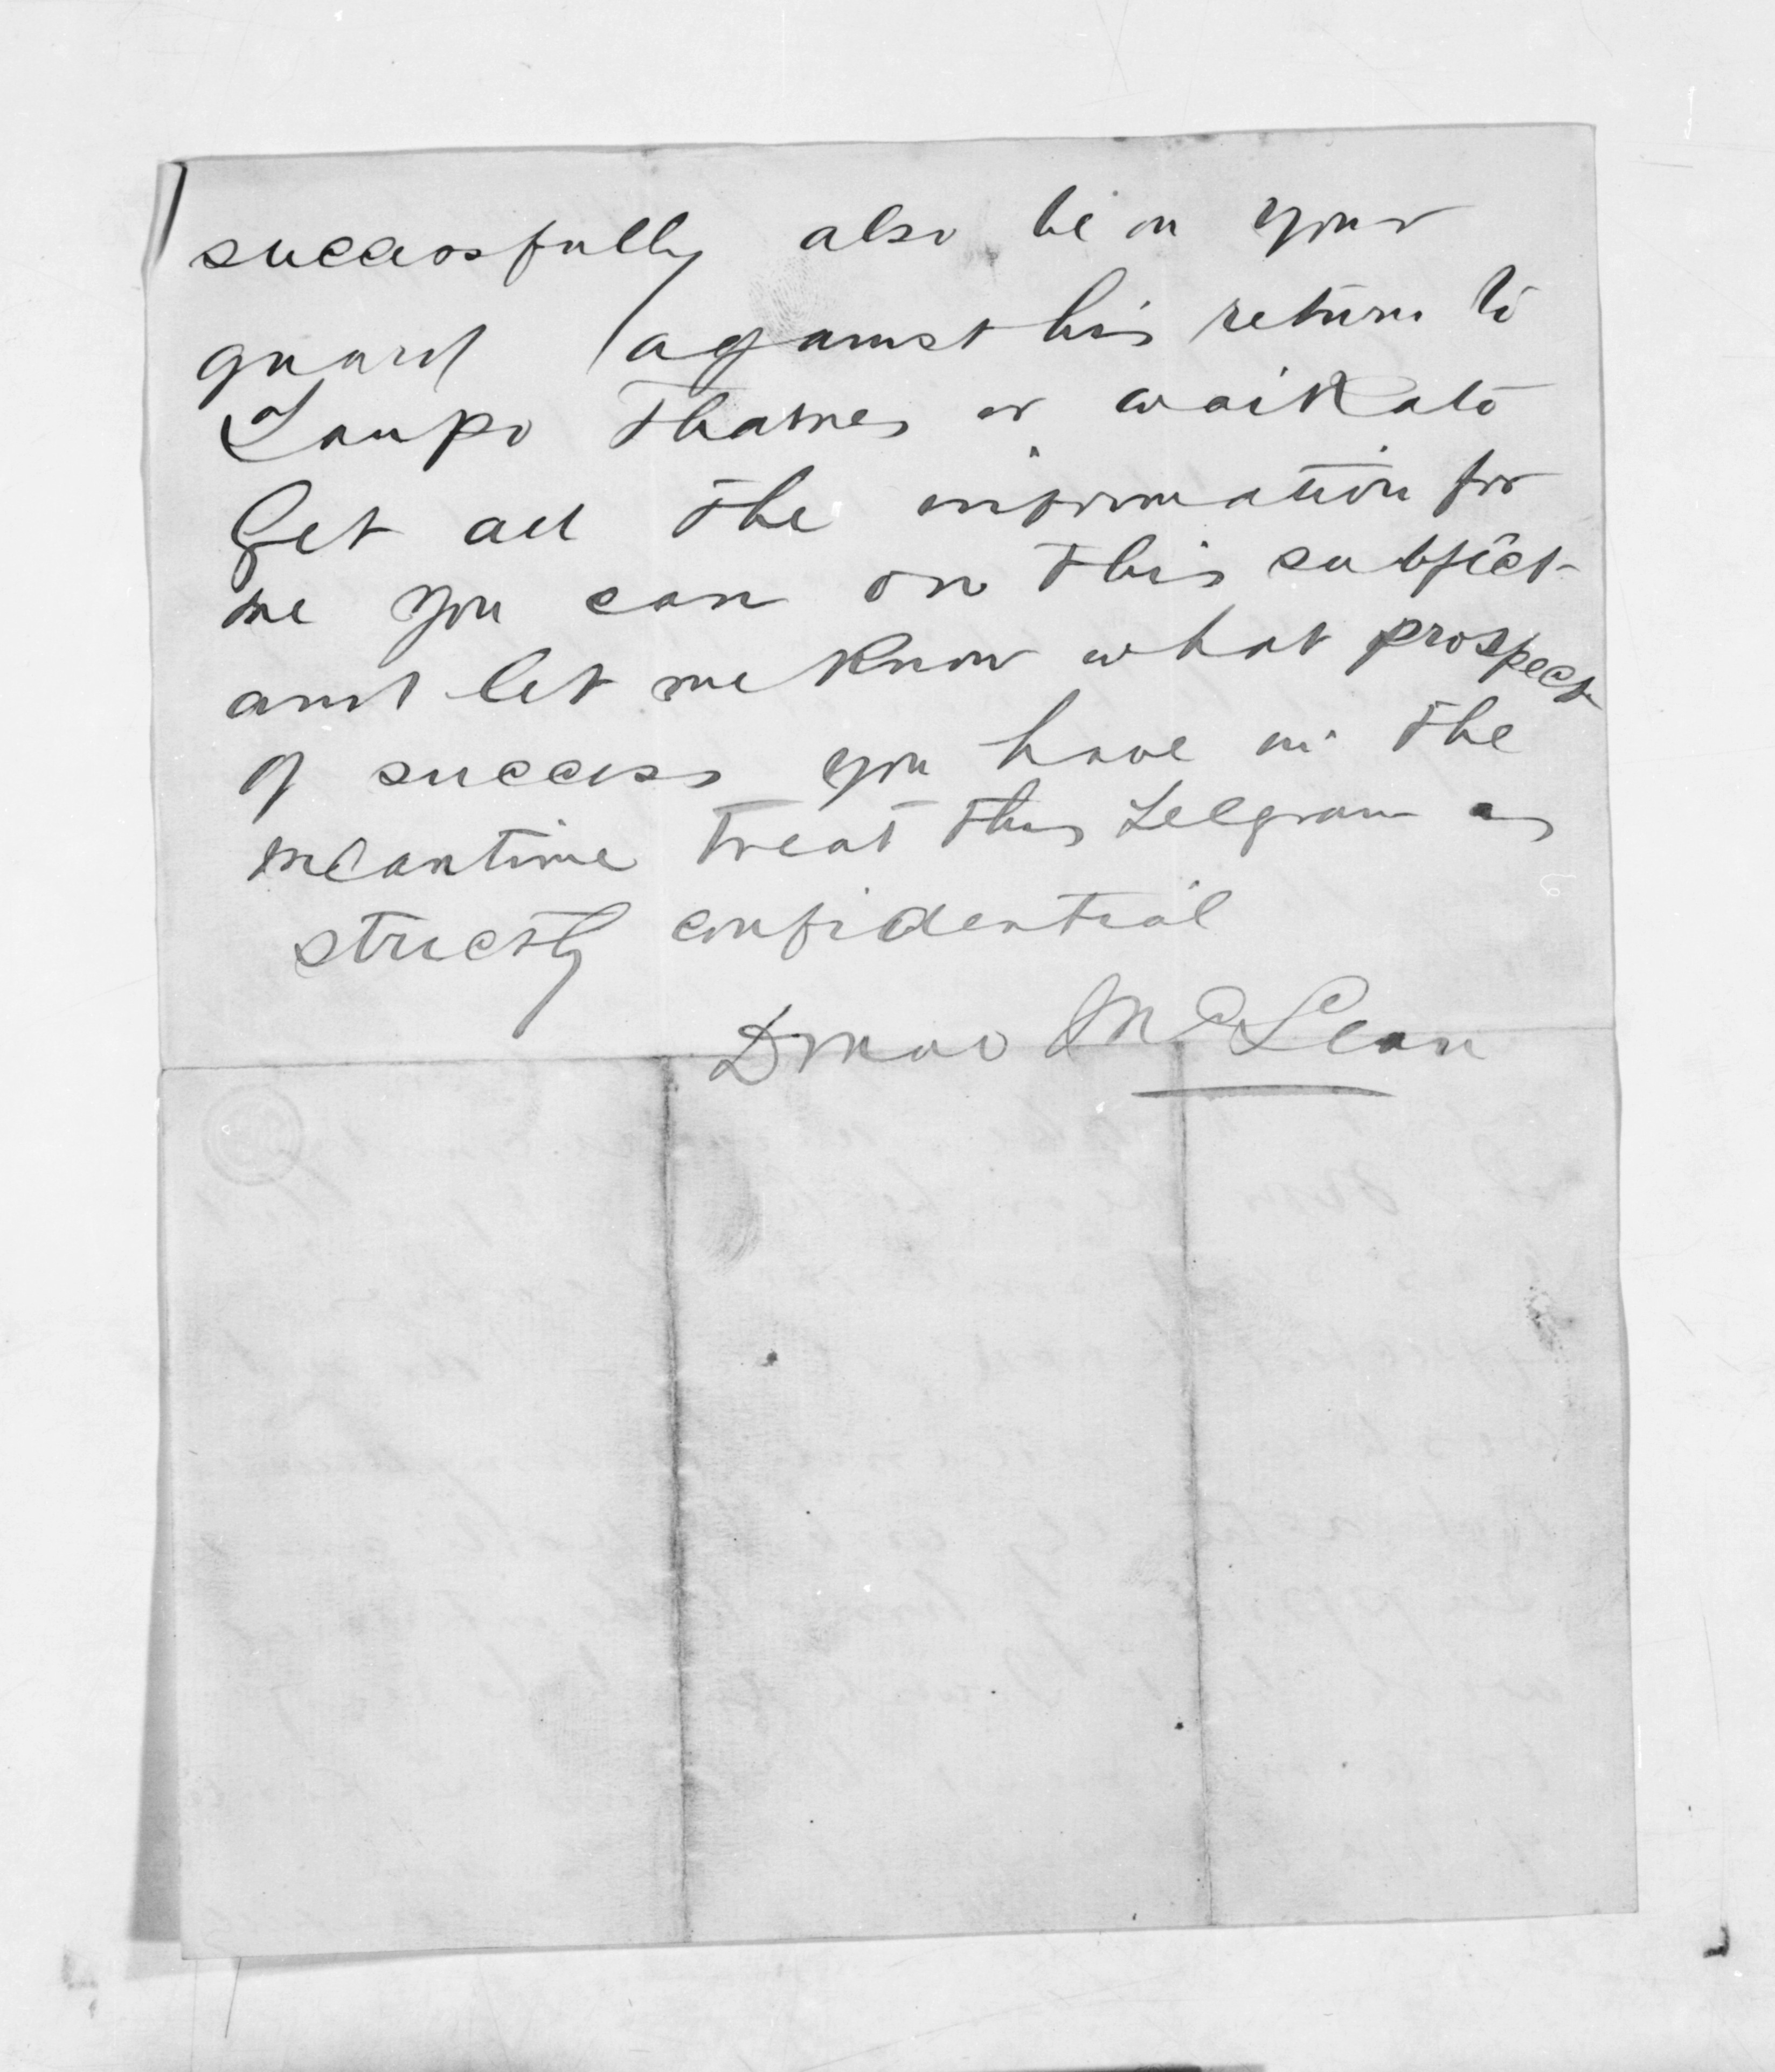 successfully also be on your
guard against his return to
Taupo Thames or waikato
Get all the information for
me you can on this subject
and let me know what prospect
of success you have in the
meantime treat this telegram as
strictly confidential
McLean